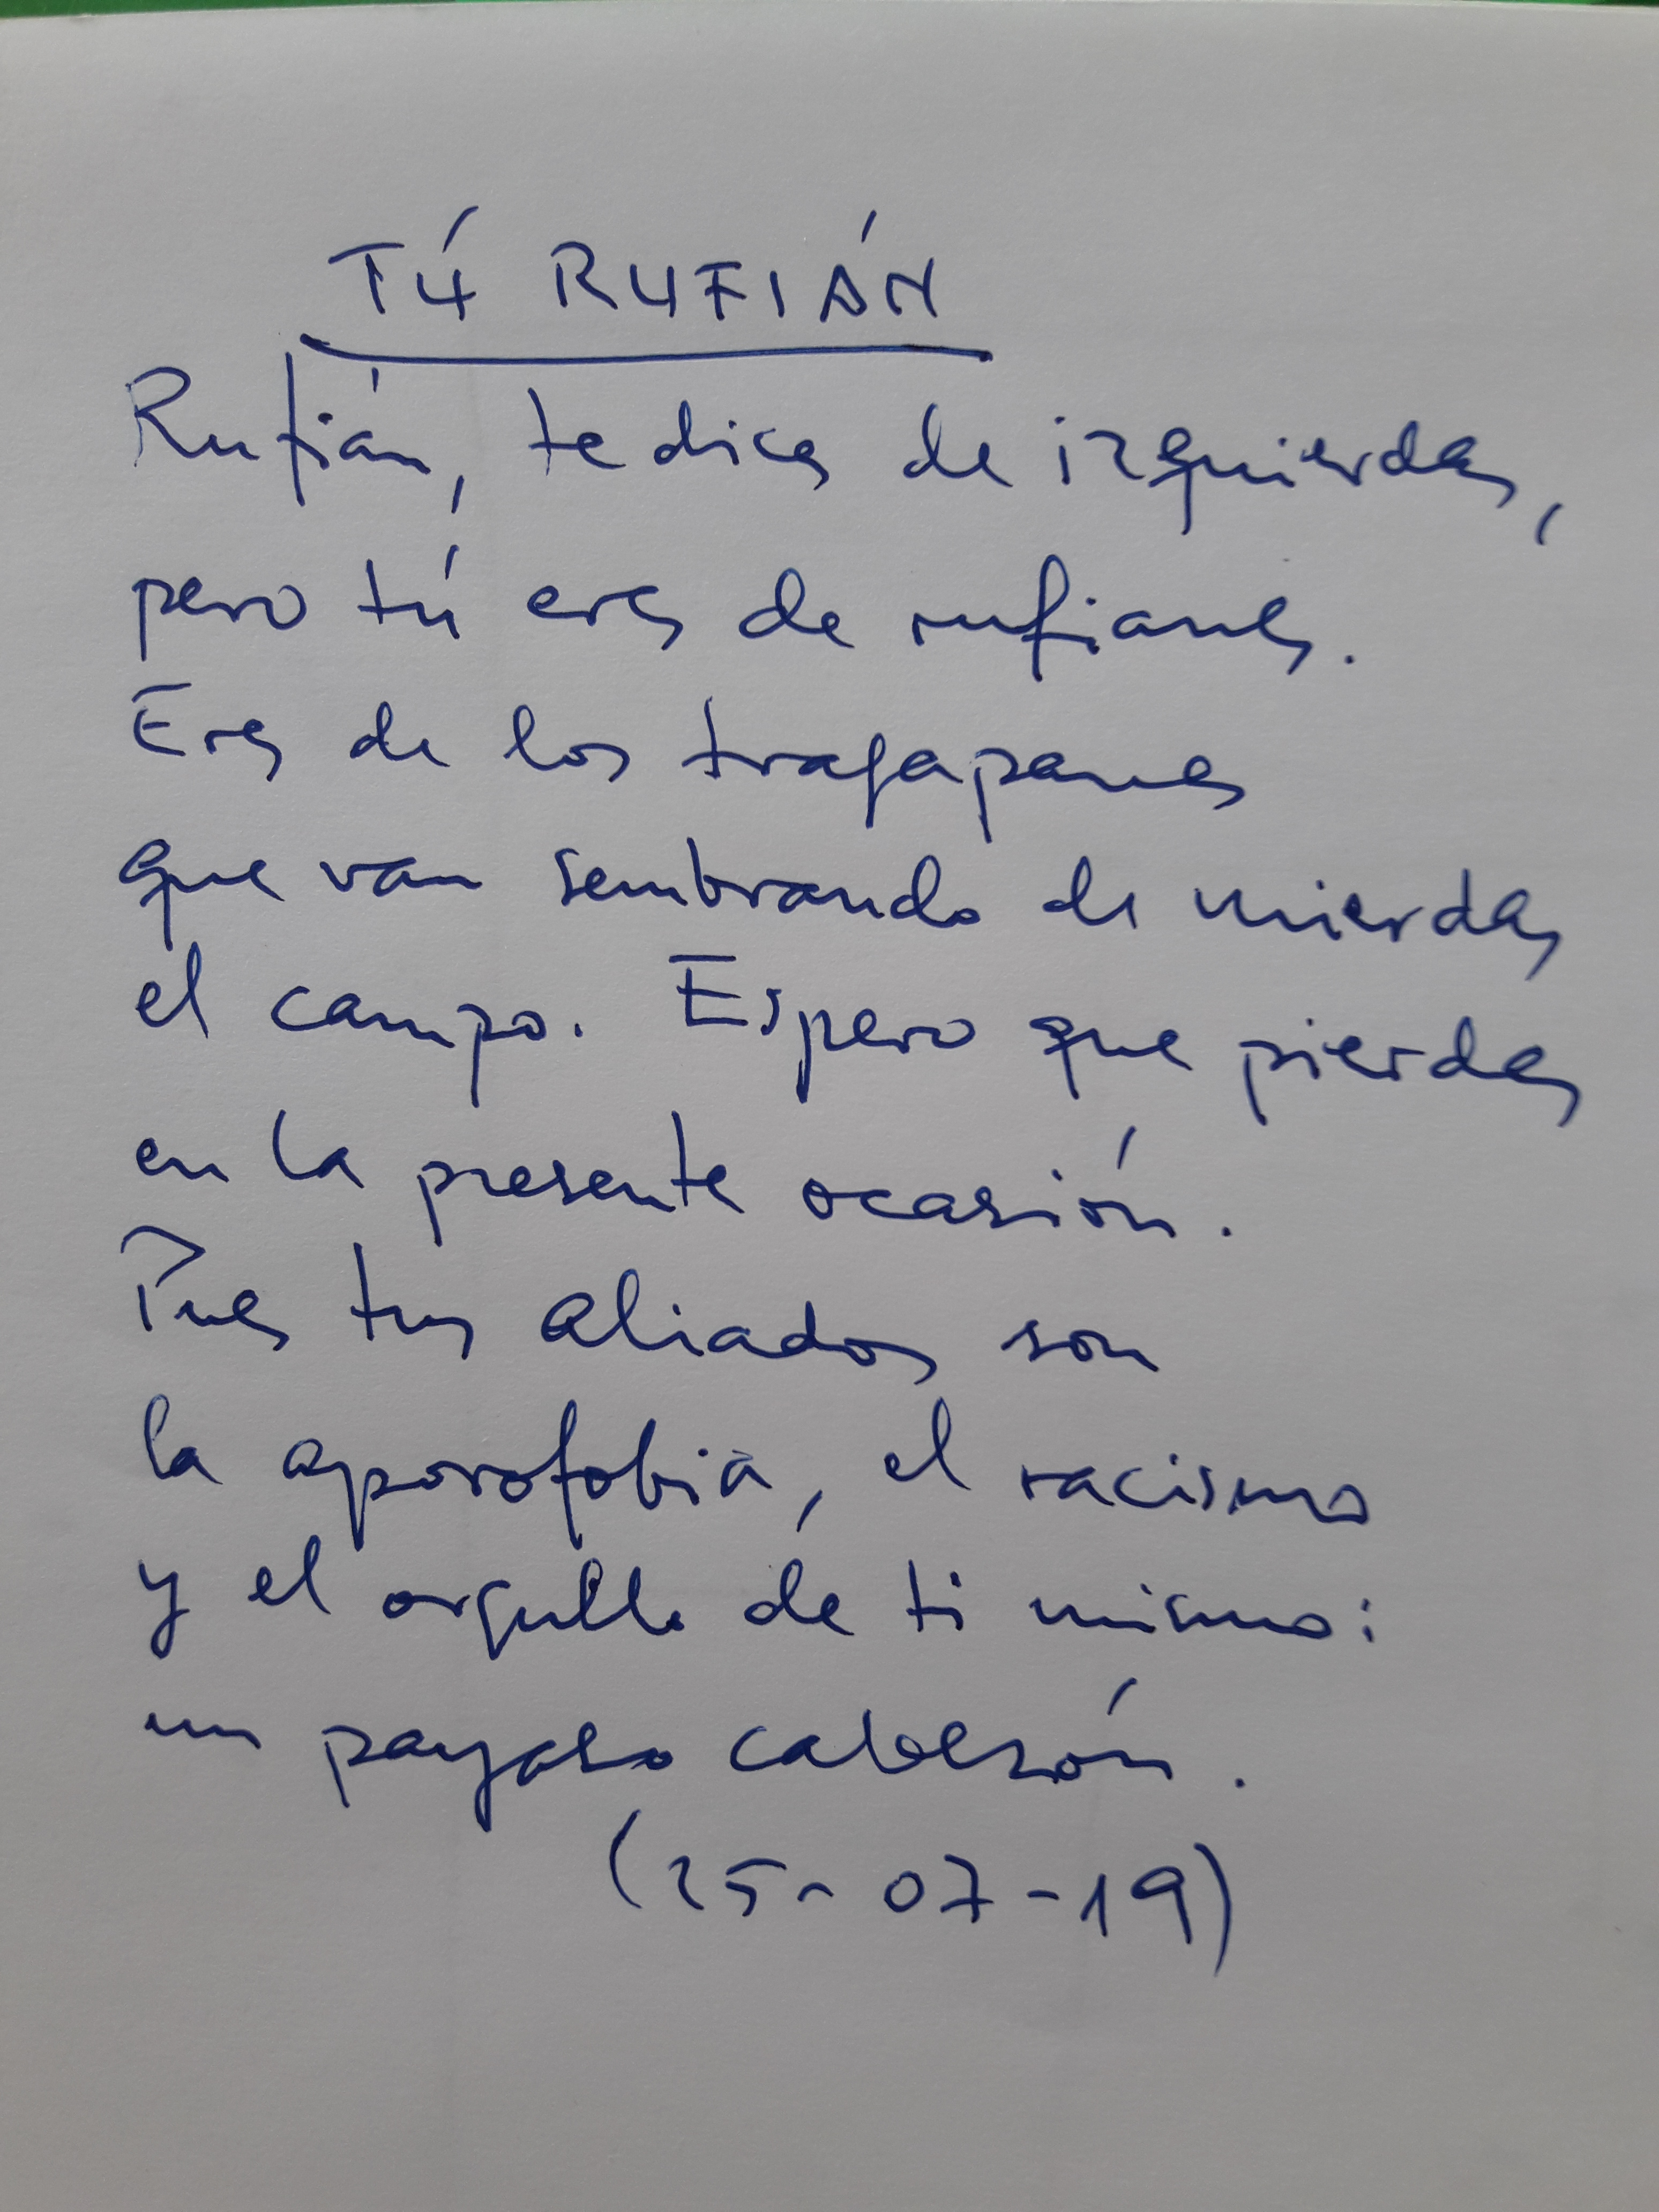 TÚ RUFIÁN
Rufián, te dices de izquierdas,
pero tú eres de rufianes.
Eres de los tragapanes
que van sembrando de mierdas
el campo. Espero que pierdas
en la presente ocasión.
Pues tus aliados son
la aporofobia, el racismo
y el orgullo de ti mismo:
un payaso cabezón.
(25-07-19)